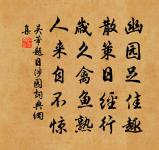 幽园足佳趣
散策日经行
岁久禽鱼熟
人来自不惊
吴芾题日涉园词典网
集